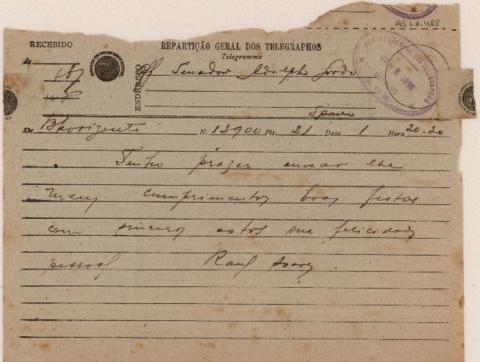 AG.1.1.988
RECEBIDO
REPARTIÇÃO GERAL DOS TELEGRAPHOS
Telegramma
ENDEREÇO
Senador Adolpho Gordo
SPaulo
De Bhorizonte N. 13900 Pls. 21 Data 1 Hora 20.20
Tenho prazer enviar lhe
meus cumprimentos boas festas
com sinceros votos sua felicidade
pessoal Raul Soares